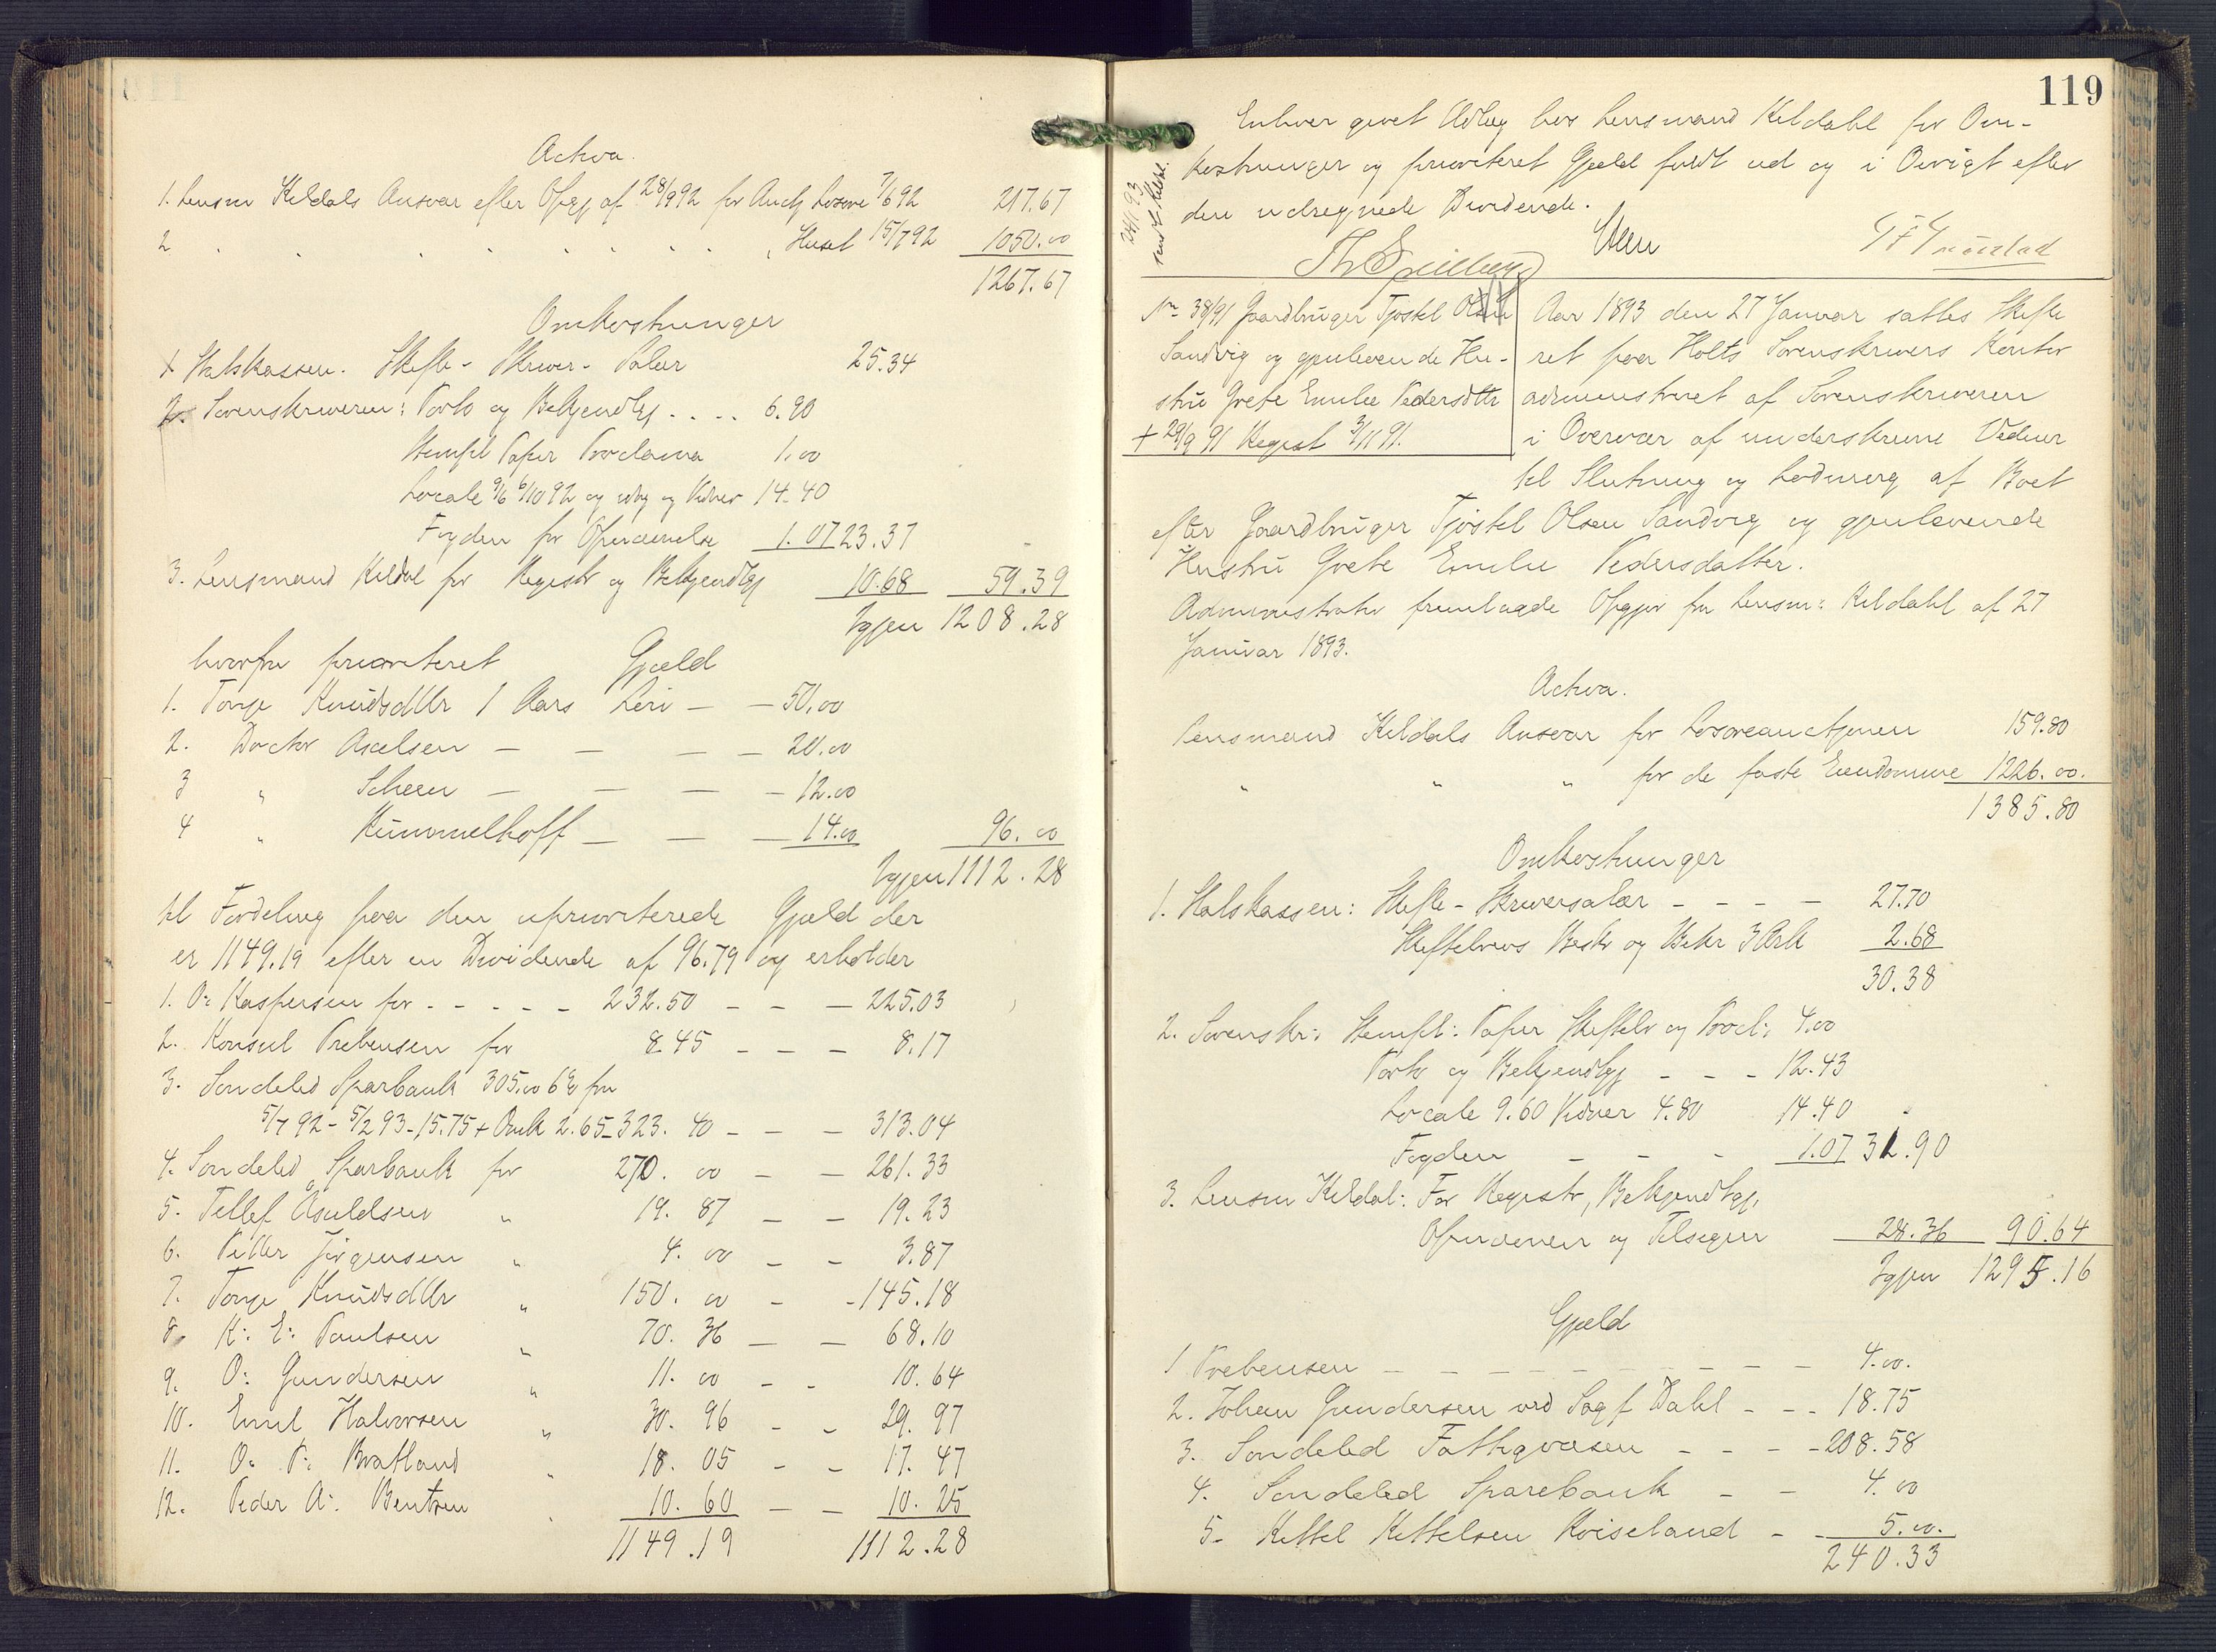 Activa.
1. Lensm Kildals Ansvar efter Opgj af 28/9 92 for Auctj Løsøre 7/6 92 217.67
2 " " " " " " " " Huset 15/7 92 1050.00
1267.67
Omkostninger
1 Statskassen. Skifte - Skriver - Salær 25.34
2. Sorenskriveren: Porto og Bekjendtg .... 6.90
Stempl Papir Proclama 1.00
Locale 9/6 6/10 92 og udlg og Vidner 14.40
Fogden for Opnævnelse 1.07 23.37
3. Lensmand Kildal for Registr og Bekjendtg 10.68 59.39
Igjen 1208.28
hvorfra prioriteret Gjæld
1. Tonje Knudsdttr 1 Aars Løn - - 50.00
2. Doctor Axelsen - - - - 20.00
3 " Scheen - - - - 12.00
4 " Kummelhoff - - - 14.00 96.00
Igjen 1112.28
til Fordeling paa den uprioriterede Gjæld der
er 1149.19 efter en Dividende af 96.79 og erholder
1. O: Kaspersen for - - - - - 232.50 - - - 225.03
2. Konsul Prebensen for 8.45 - - - 8.17
3. Søndeled Sparbank 305.00 6% fra
5/4 92 - 5/2 93 - 15.75 + Omk 2.65 - 323.40 - - - 313.04
4. Søndeled Sparbank for 270.00 - - 261.33
5. Tellef Asuldsen " 19.87 - - 19.23
6. Peter Jørgensen " 4.00 - - 3.87
7. Tonje Knudsdttr " 150.00 - - 145.18
8. K: E: Paulsen " 70.36 - - 68.10
9. O: Gundersen " 11.00 - - 10.64
10. Emil Halvorsen " 30.96 - - 29.97
11. O: P: Bratland " 18.05 - - 17.47
12. Peder A: Bentsen " 10.60 - - 10.25
1149.19 1112.28
119
Enhver givet Udlæg hos Lensmand Kildahl for Om-
kostninger og prioriteret Gjæld fuldt ud og i Øvrigt efter
den udregnede Dividende.
24/1 93
Th Spillberg
No 38/91 Gaardbruger Tjøstel Olsen
Sandvig og gjenlevende Hu-
stru Grete Emilie Pedersdttr
+ 29/9 91 Registr 3/11 91.
Aar 1893 den 27 Januar sattes Skifte
ret paa Holts Sorenskrivers Kontor
administreret af Sorenskriveren
i Overvær af underskrevne Vidner
til Slutning og Lodning af Boet
efter Gaardbruger Tjøstel Olsen Sandvig og gjenlevende
Hustru Grete Emilie Pedersdatter.
Administrator fremlagde Opgjør fra Lensm: Kildahl af 27
Januar 1893.
Activa.
Lensmand Kildals Ansvar for Løsøreauctjonen 159.80
" " " for de faste Eiendomme 1226.00.
1385.80
Omkostninger
1. Statskassen: Skifte - Skriversalær - - - - 27.70
Skiftebrevs Beskr og Bekr 3 Ark 2.68
30.38
2. Sorenskr: Stempl: Papir Skiftebr og Procl: 4.00
Porto og Bekjendtg - - - 12.43
Locale 9.60 Vidner 4.80 14.40
Fogden - - - 1.07 31.90
3. Lensm Kildal: For Registr, Bekjendtgj,
Opnævnen og Tilsigen 28.36 90.64
Igjen 1295.16
Gjæld
1 Prebensen - - - - - - - - - 4.00.
2. Johan Gundersen ved Sagf Dahl - - - 18.75
3. Søndeled Fattigvæsen - - - - 208.58
4. Søndeled Sparebank - - 4.00
5. Kittel Kittelsen Kviseland - - 5.00.
240.33